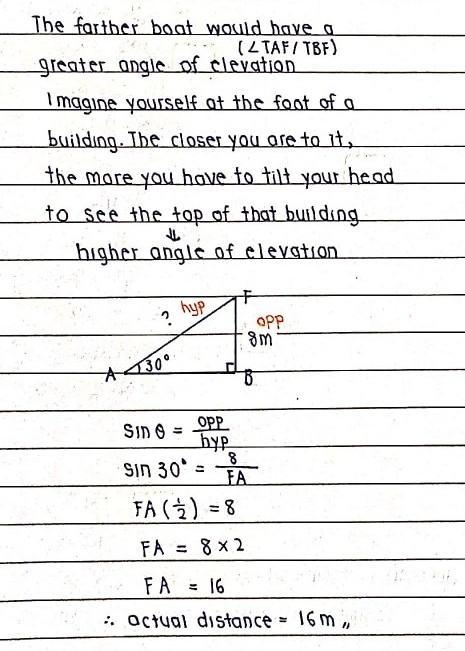 The farther boat would have a
(∠TAF/TBF)
greater angle of elevation
Imagine yourself at the foot of a
building. The closer you are to it,
the more you have to tilt your head
to see the top of that building
⇓
higher angle of elevation
F
? hyp
opp
8m
30°
A
B
sin θ = opp/hyp
sin 30° = 8/FA
FA (1/2) = 8
FA = 8 × 2
FA = 16
∴ actual distance = 16m,,